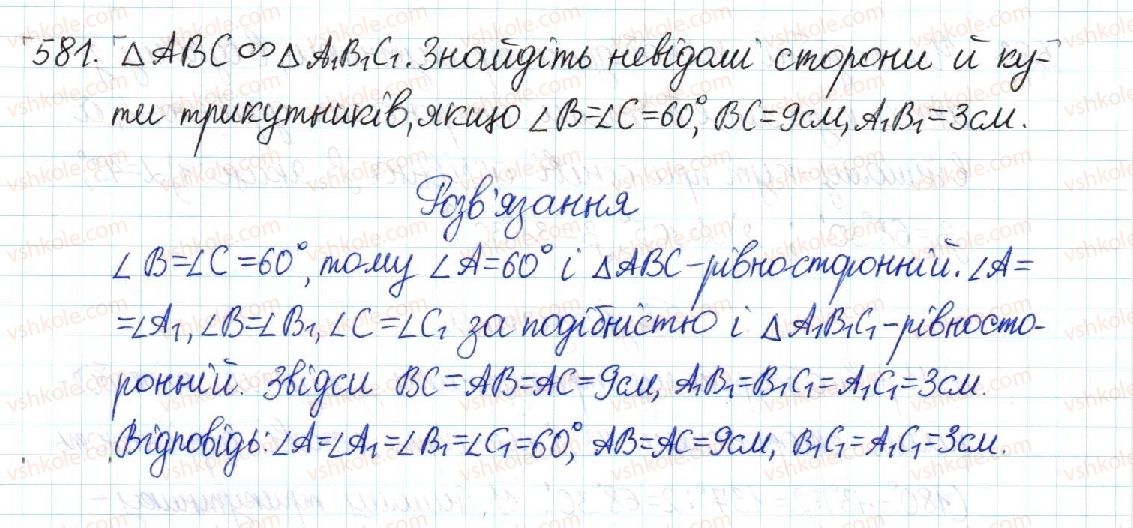 581. △ABC∾△A₁B₁C₁. Знайдіть невідомі сторони й ку-
ти трикутників, якщо ∠B=∠C=60°, BC=9см, A₁B₁=3см.
Розв'язання
∠B=∠C=60°, тому ∠A=60° і △ABC-рівносторонній. ∠A=
=∠A₁, ∠B=∠B₁, ∠C=∠C₁ за подібністю і △A₁B₁C₁-рівносто-
ронній. Звідси BC=AB=AC=9см, A₁B₁=B₁C₁=A₁C₁=3см.
Відповідь: ∠A=∠A₁=∠B₁=∠C₁=60°, AB=AC=9см, B₁C₁=A₁C₁=3см.